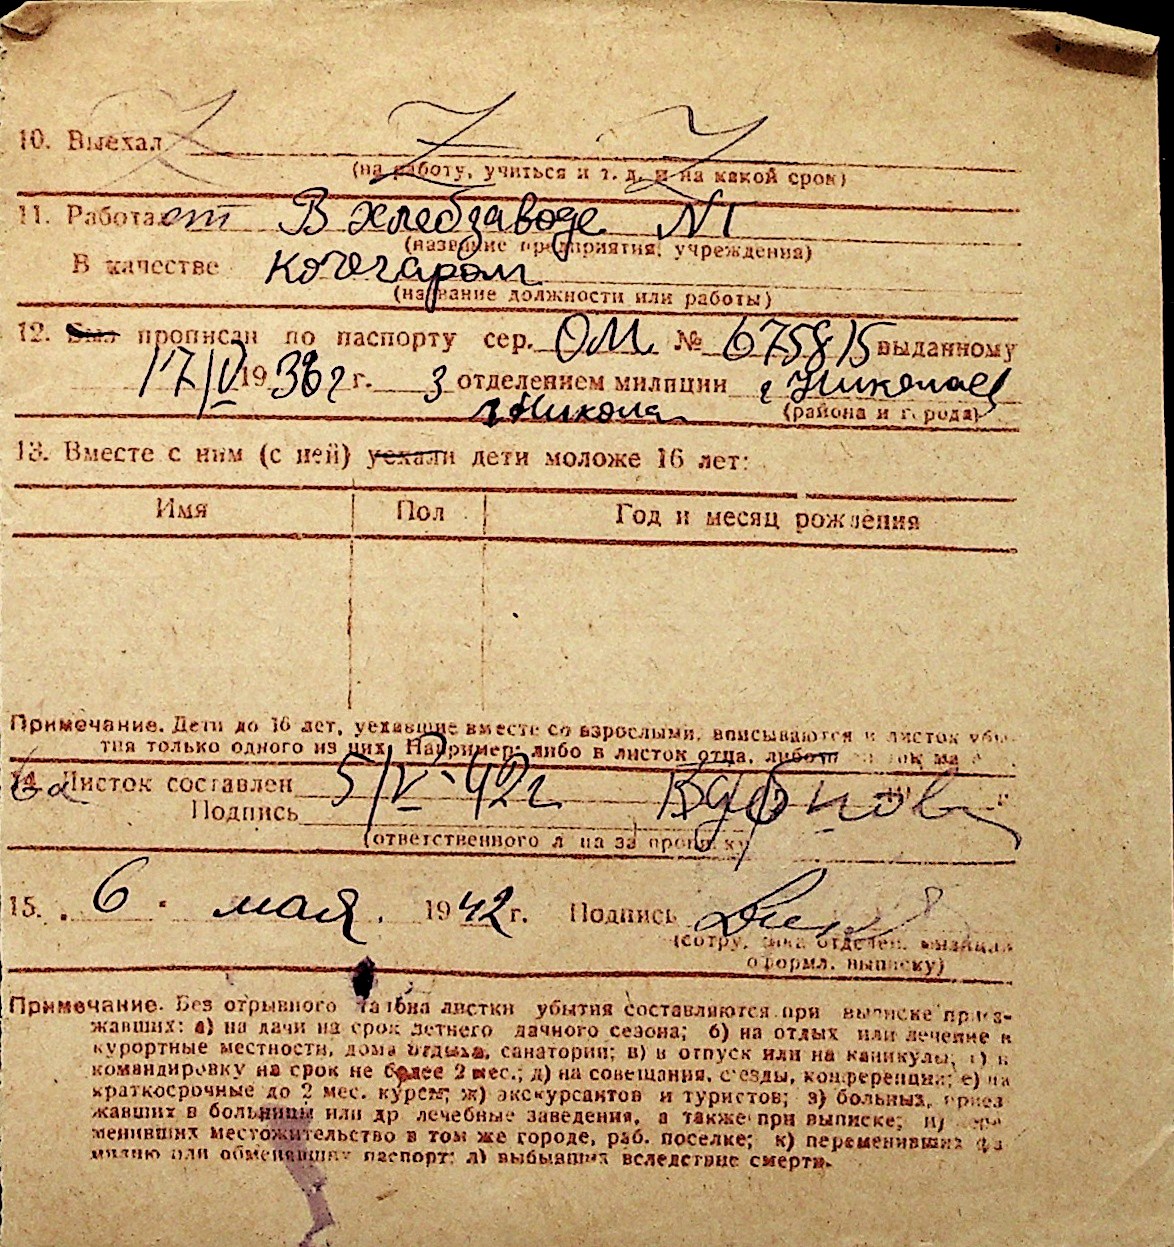 10. Выехал Z Z Z
(на работу, учиться и т. д. и на какой срок)
11. Работает В хлебзаводе №1
(название предприятия, учреждения)
В качестве кочегаром
(название должности или работы)
12. Был прописан по паспорту сер. ОМ № 675815 выданному
17/V 1938 г г. 3 отделением милиции г Николаев
г. Никола (района и города)
13. Вместе с ним (с ней) уехали дети моложе 16 лет:
Имя Пол Год и месяц рождения
Примечание. Дети до 16 лет, уехавшие вместе со взрослыми, вписываются в листок убы-
тия только одного из них. Например: либо в листок отца, либо
14. Листок составлен 5/V-42г
Подпись
(ответственного лица за прописку)
15. 6 мая 1942 г. Подпись
(сотрудника отделен. милиции
оформл. выписку)
Примечание. Без отрывного талона листки убытия составляются при выписке приез-
жавших: а) на дачи на срок летнего дачного сезона; б) на отдых или лечение в
курортные местности, дома отдыха, санатории; в) в отпуск или на каникулы; г) в
командировку на срок не более 2 мес.; д) на совещания, съезды, конференции; е) на
краткосрочные до 2 мес. курсы; ж) экскурсантов и туристов; з) больных, приез
жавших в больницы или др лечебные заведения, а также при выписке; и) пере
менивших местожительство в том же городе, раб. поселке; к) переменивших фа
милию или обменявших паспорт; л) выбывших вследствие смерти.